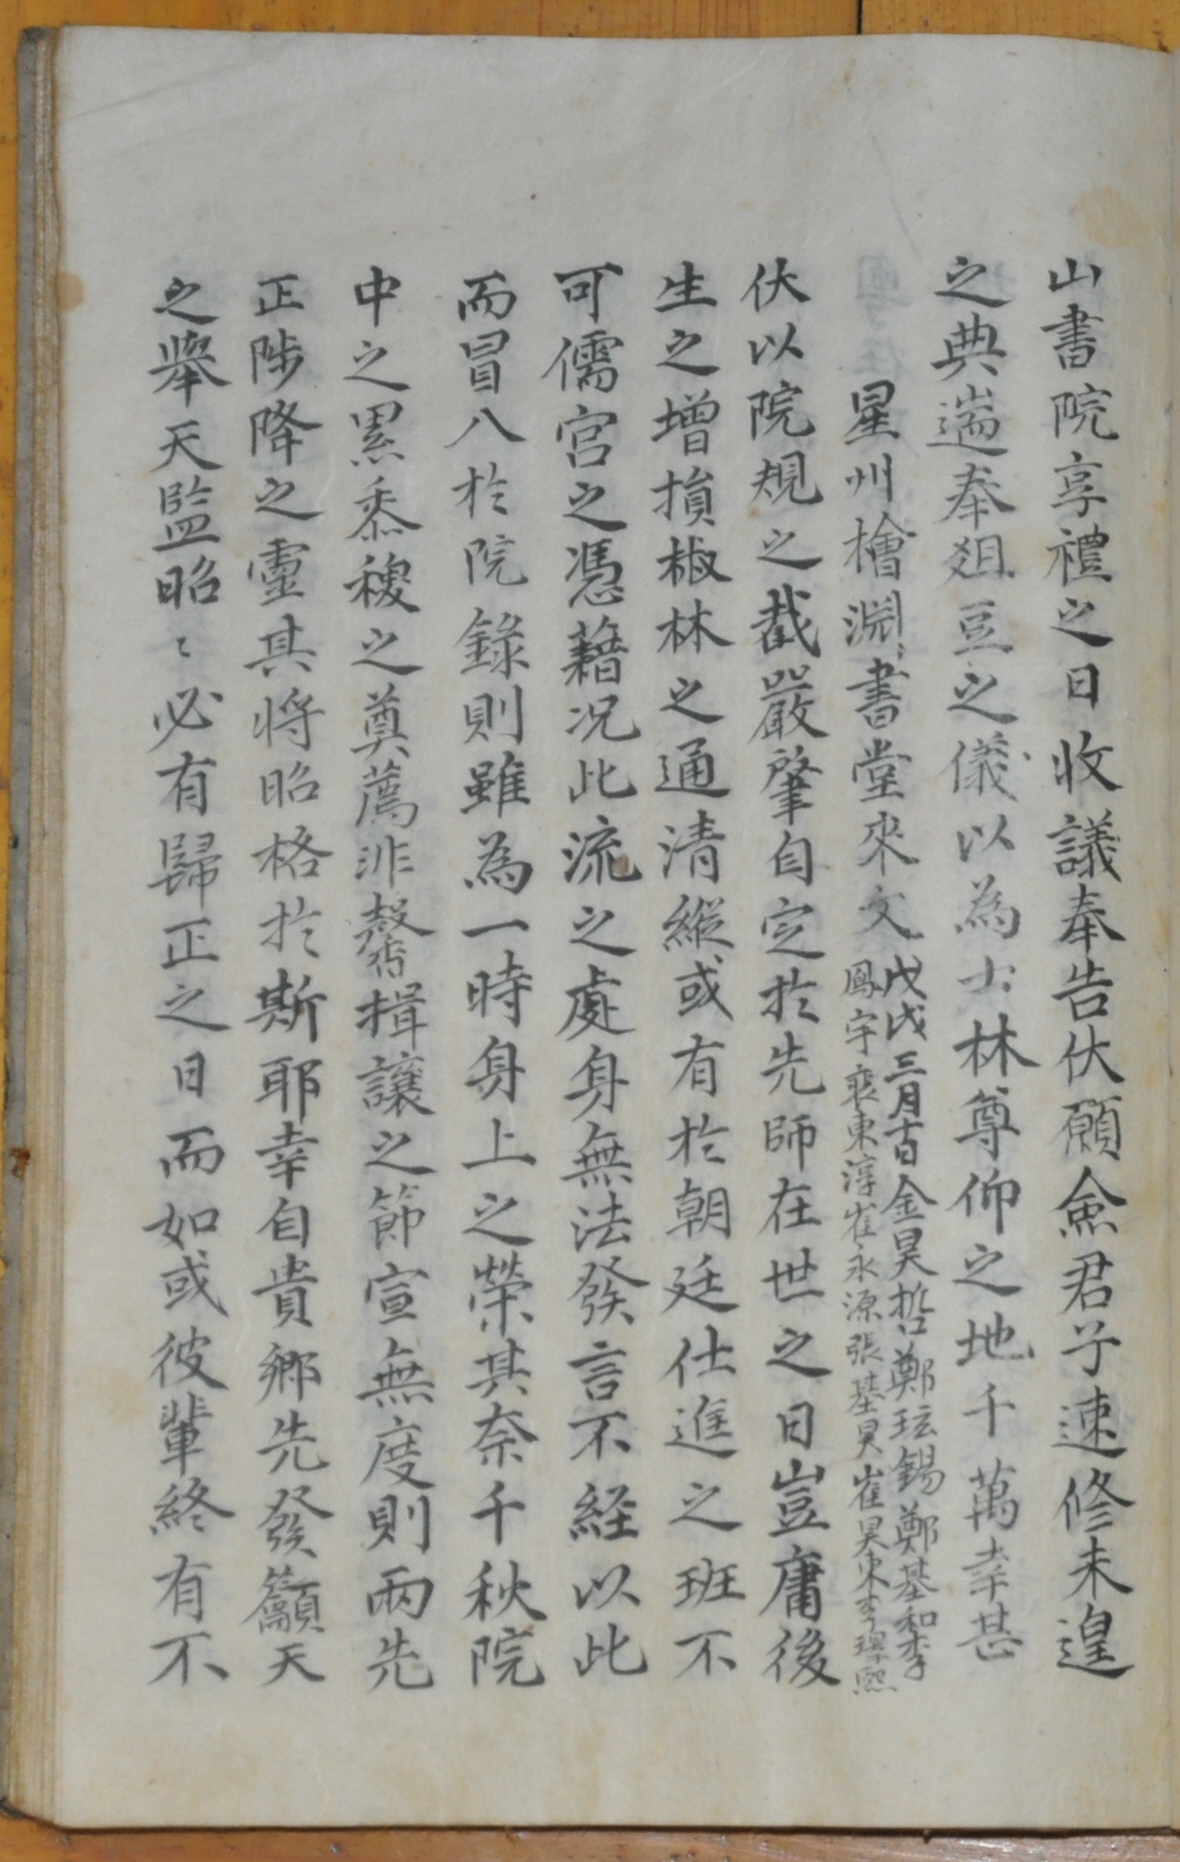 山書院享禮之日收議奉告伏願僉君子速修未遑
之典遄奉俎豆之儀以為士林尊仰之地千萬幸甚
星州檜淵書堂來文
戊戌三月十日金昊哲鄭玹錫鄭基和李
鳳宇裵東淳崔永源張基昊崔昊東李璟熙
伏以院規之截嚴肇自定於先師在世之日豈庸後
生之增損椒林之通清縱或有於朝廷仕進之班不
可儒宮之憑藉况此流之處身無法發言不経以此
而冒入於院錄則雖為一時身上之榮其奈千秋院
中之累黍稷之奠薦非馨揖讓之節宣無度則兩先
正陟降之靈其将昭格於斯耶幸自貴鄉先發籲天
之舉天監昭〻必有歸正之日而如或彼輩終有不